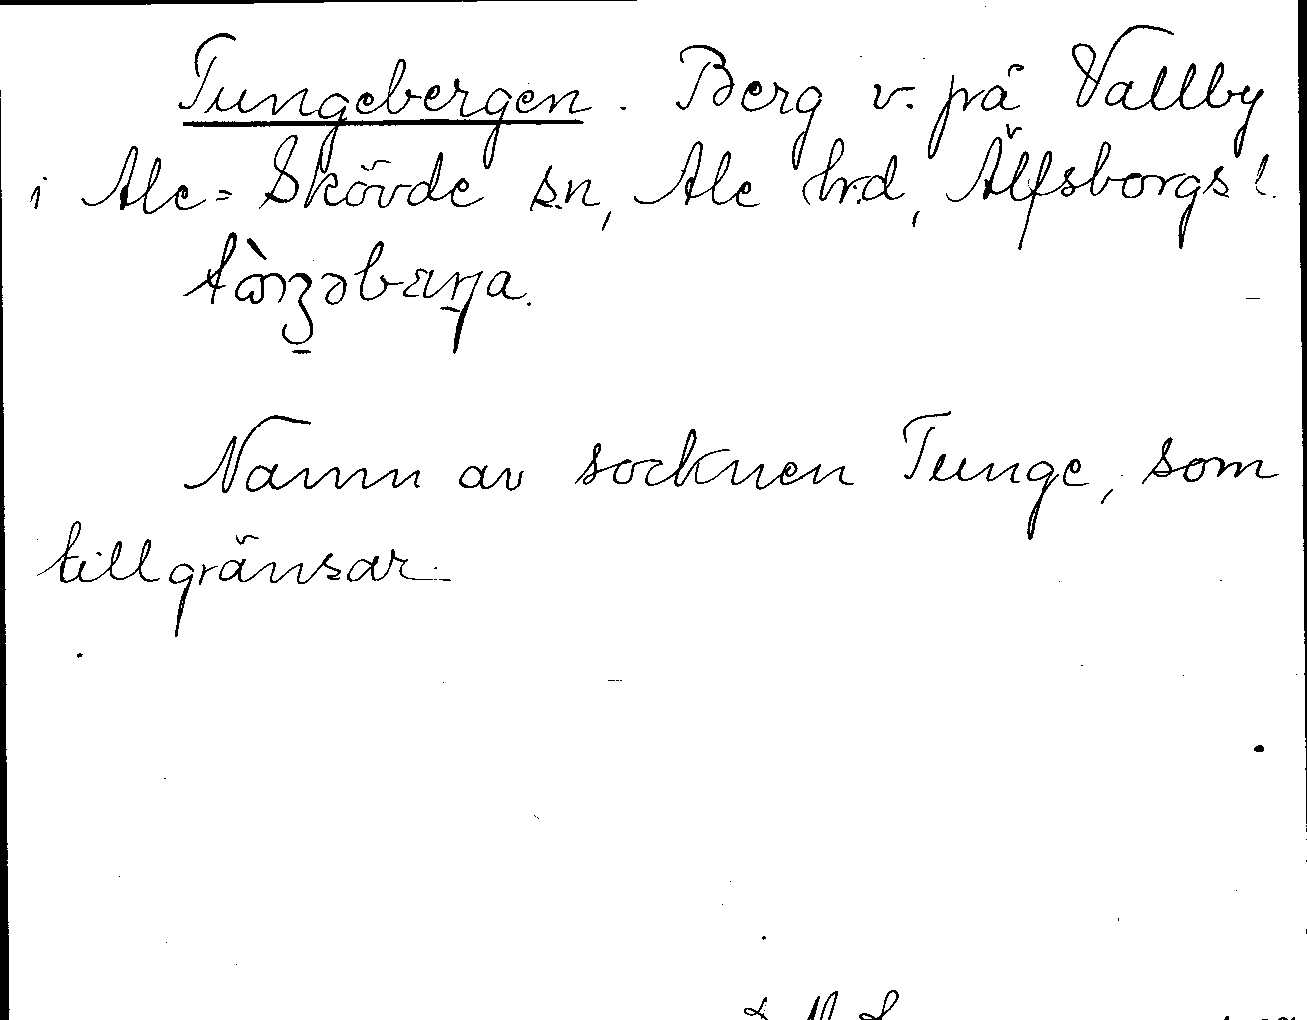 Tungebergen. Berg v. på Vallby
i Ale-Skövde sn, Ale hrd, Älfsborgs l.
Namn av socknen Tunge, som
tillgränsar.